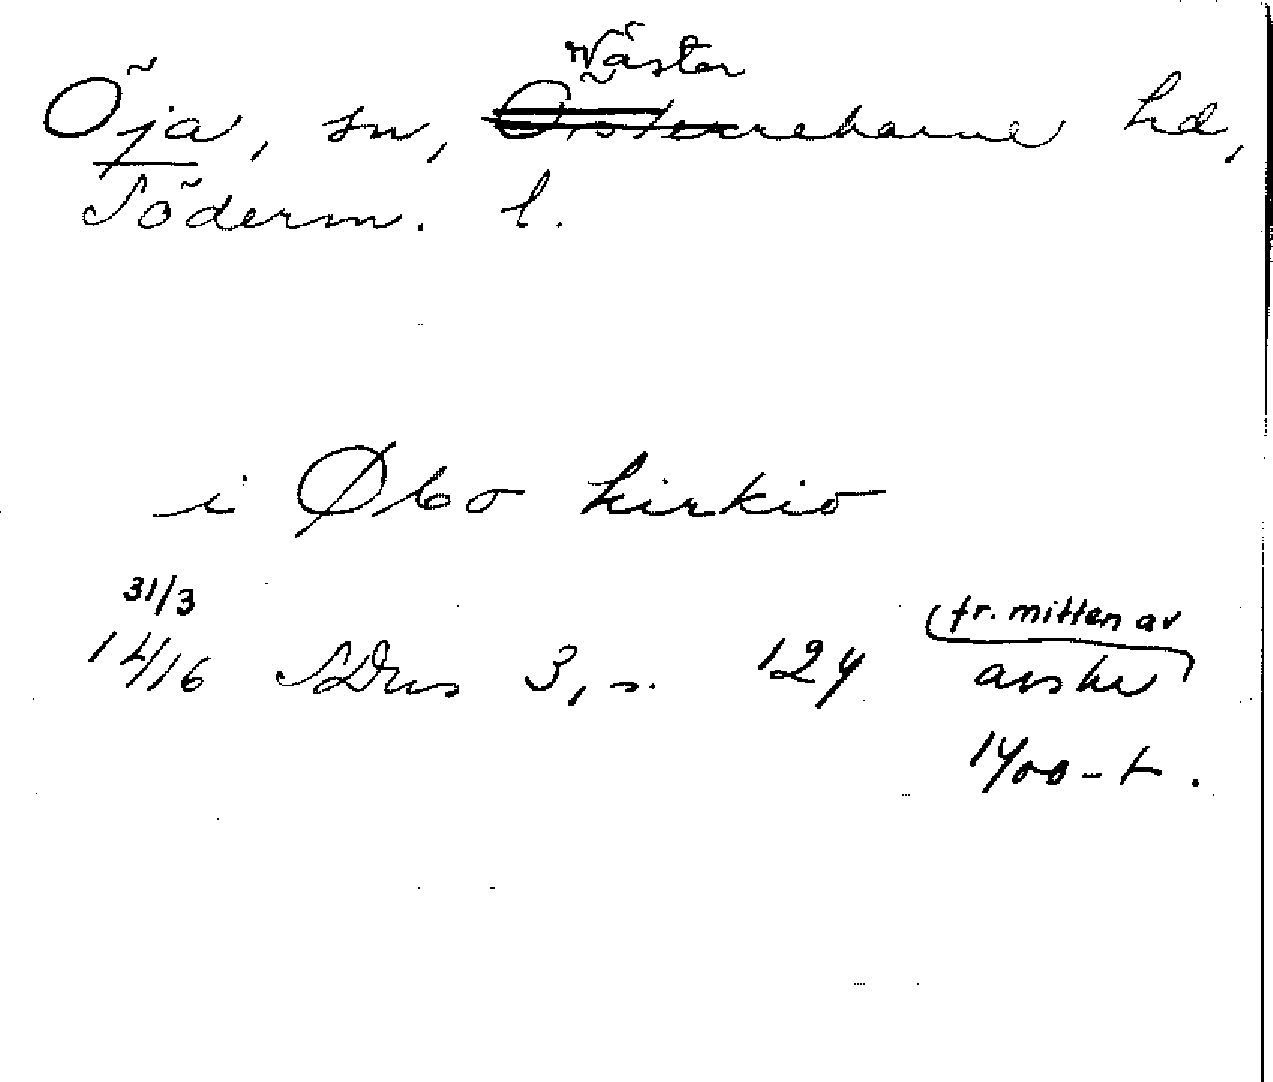 Väster
Öja, sn, Österrekarne hd,
Söderm. l.
i Øbo kirkio
31/3
1416 SDns 3, s. 124 avskr
fr. mitten av
1400-t.